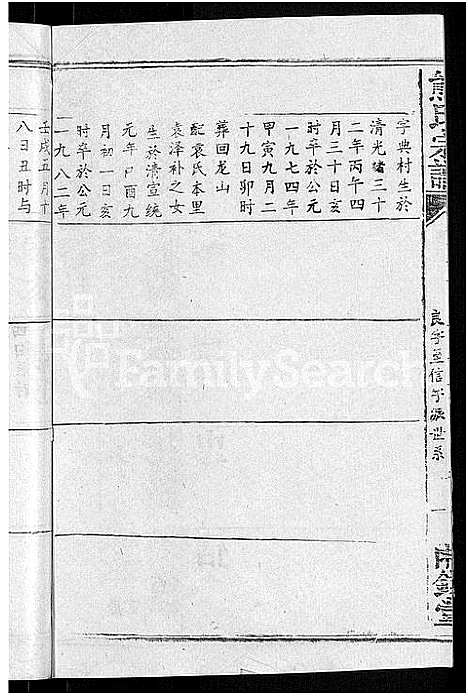 字典村生於
清光绪三十
二年丙午四
月三十日亥
时卒於公元
一九七四年
甲寅九月二
十九日卯时
葬回龙山
配袁氏本里
袁泽补之女
生於清宣统
元年己酉九
月初一日亥
时卒於公元
一九八二年
壬戌五月十
八日丑时与
良字至信字派世系
FamilySearch